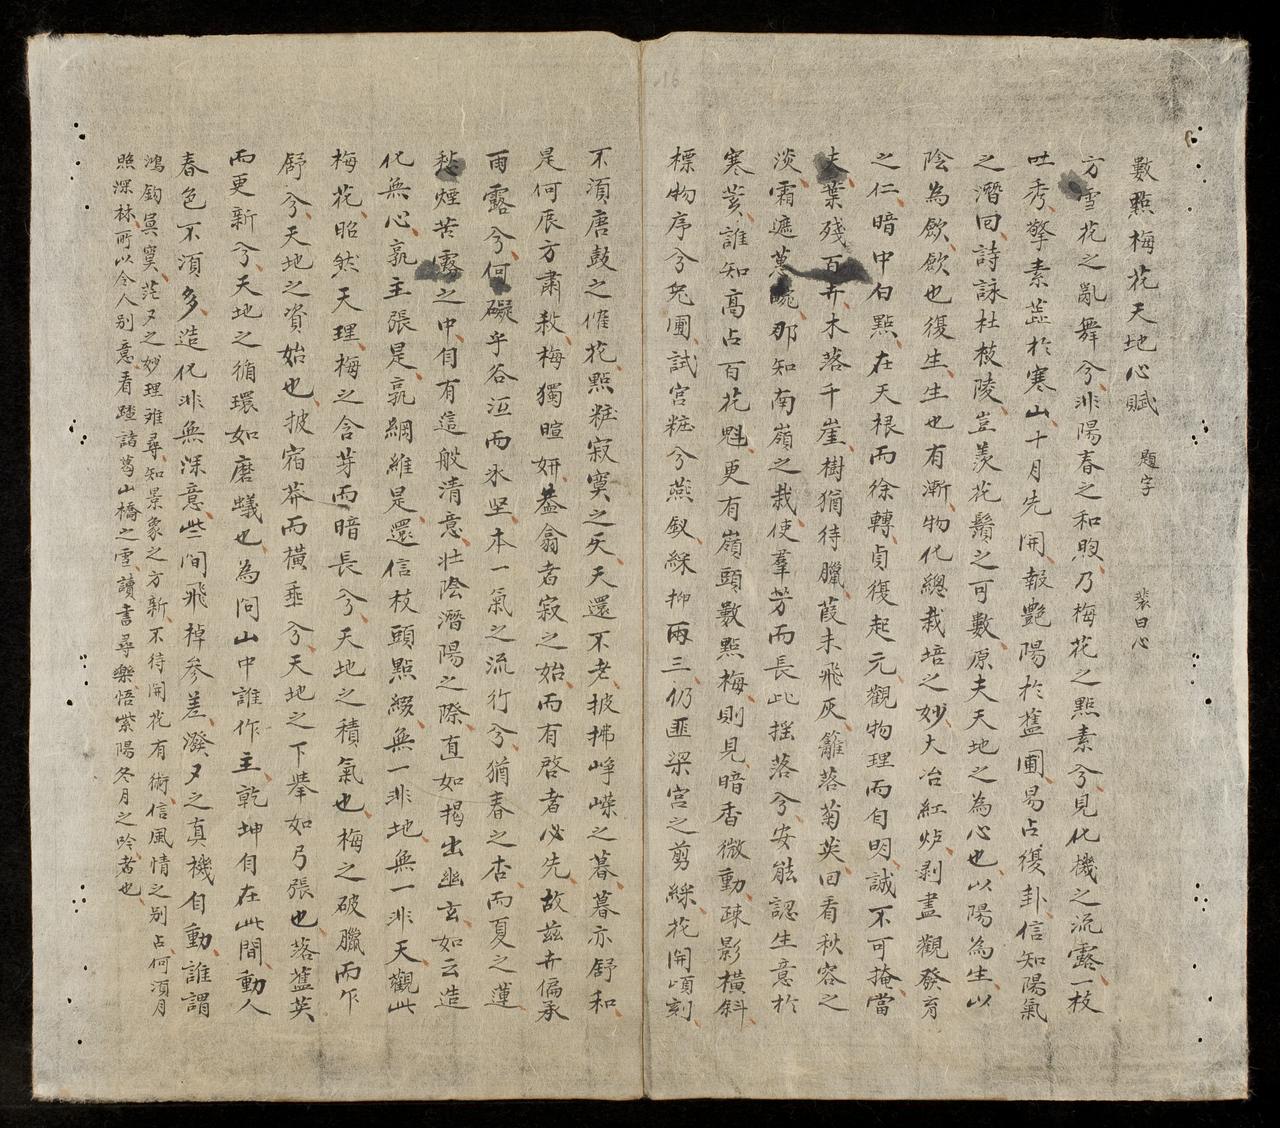 數點梅花天地心賦 題字 裴日心
方雪花之亂舞兮非陽春之和煦乃梅花之點素兮見化機之流露一枝
吐秀擎素蕋於寒山十月先開報艷陽於舊圃易占復卦信知陽氣
之潛回詩詠杜枝陵豈羨花鬚之可數原夫天地之為心也以陽為生以
陰為歛歛也復生生也有漸物化總栽培之妙大冶紅炉剥盡觀發育
之仁暗中白點在天根而徐轉貞復起元觀物理而自明誠不可掩當
夫葉殘百卉木落千崖樹猶待臘葭未飛灰籬落菊英回看秋容之
淡霜遮蕙畹那知南嶺之栽使羣芳而長此揺落兮安能認生意於
寒荄誰知高占百花魁更有嶺頭數點梅則見暗香微動疎影橫斜
標物序兮兎圃試宮粧兮燕釵綵抑兩三仍匪梁宮之剪綵花開頃刻
不湏唐鼓之催花點粧寂寞之天天還不老披拂崢嶸之暮暮亦舒和
是何辰方肅殺梅獨暄妍葢翕者寂之始而有啓者必先故兹卉偏承
雨露兮何礙乎谷沍而氷坚本一氣之流行兮猶春之杏而夏之蓮
愁煙苦露之中自有這般清意壮陰潛陽之際直如揭出幽玄如云造
化無心孰主張是孰綱維是還信枝頭點綴無一非地無一非天觀此
梅花昭然天理梅之含芽而暗長兮天地之積氣也梅之破臘而乍
舒兮天地之資始也披宿莽而橫垂兮天地之下挙如弓張也落舊英
而更新兮天地之循環如磨蟻也為问山中誰作主乾坤自在此間動人
春色不湏多造化非無深意些間飛棹參差潑夕之真機自動誰謂
鴻鈞冥寞茫夕之妙理难尋知景象之方新不待開花有術信風情之别占何湏月
照深林所以令人别意看踏諸葛山橋之雪讀書尋樂悟紫陽冬月之吟者也